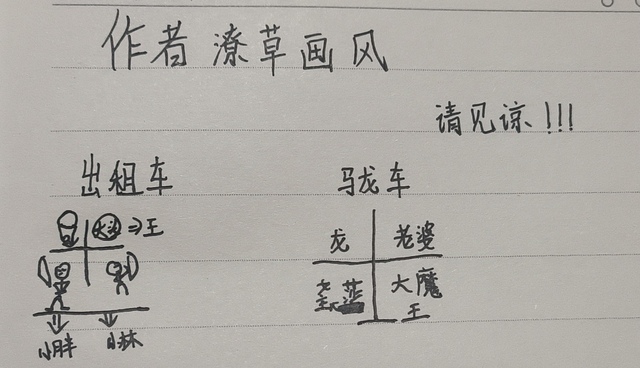 作者潦草画风
请见谅!!!
出租车
马龙车
王
龙 老婆
大魔
王
小胖 小林